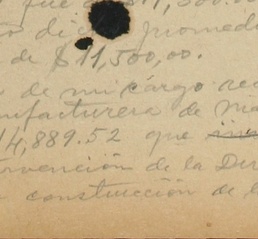 fue
promedio
de $11,500,00.
de mi cargo
nufacturera de
14,889.52 que
tervención de la Dir
construcción de l